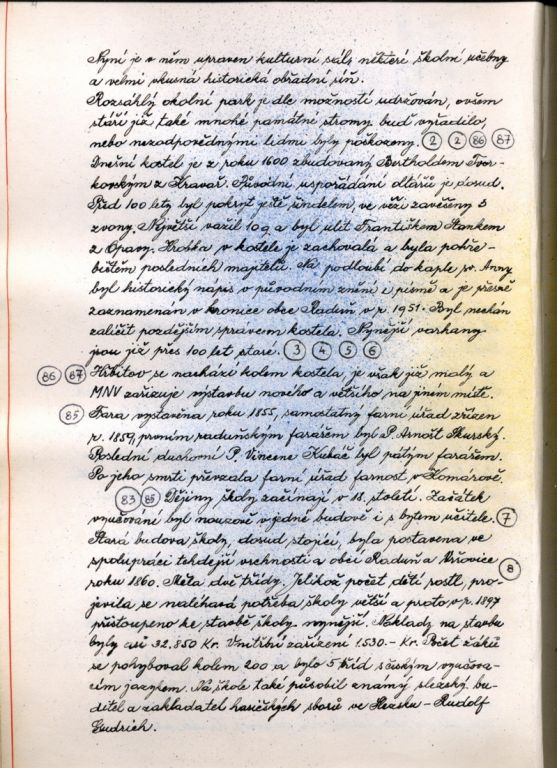 Nyní je v něm upraven kulturní sál, některé školní učebny
a velmi vkusná historická obřadní síň.
Rozsáhlý okolní park je dle možností udržován, ovšem
stáří již také mnohé památné stromy buď vyřadilo,
nebo nezodpovědnými lidmi byly poškozeny. 2 2 86 87
Dnešní kostel je z roku 1600 zbudovaný Bertholdem Tvor-
kovským z Kravař. Původní uspořádání oltářů je dosud.
Před 100 lety byl pokryt ještě šindelem, ve věži zavěšeny 3
zvony. Největší vážil 10 q a byl ulit Františkem Stankem
z Opavy. Hrobka v kostele je zachovalá a byla pohře-
bištěm posledních majitelů. Na podloubí do kaple sv. Anny
byl historický nápis v původním znění i písmě a je přesně
zaznamenán v kronice obce Raduň v r. 1951. Byl nechán
zalíčit pozdějším správcem kostela. Nynější varhany
jsou již přes 100 let staré. 3 4 5 6
86 87 Hřbitov se nachází kolem kostela, je však již malý a
MNV zařizuje výstavbu nového a většího na jiném místě.
85 Fara vystavěna roku 1855, samostatný farní úřad zřízen
r. 1859, prvním raduňským farářem byl P. Arnošt Skurský.
Poslední duchovní P. Vincenc Kubáč byl pátým farářem.
Po jeho smrti převzala farní úřad farnost v Komárově.
83 85 Dějiny školy začínají v 18. století. Začátek
vyučování byl nouzově v jedné budově i s bytem učitele. 7
Stará budova školy, dosud stojící, byla postavena ve
spolupráci tehdejší vrchnosti a obcí Raduň a Vršovice 8
roku 1860. Měla dvě třídy. Jelikož počet dětí rostl, pro-
jevila se naléhavá potřeba školy větší a proto v r. 1897
přistoupeno ke stavbě školy nynější. Náklady na stavbu
byly asi 32.850 Kr. Vnitřní zařízení 1.530.- Kr. Počet žáků
se pohyboval kolem 200 a bylo 5 tříd s českým vyučova-
cím jazykem. Na škole také působil známý slezský bu-
ditel a zakladatel hasičských sborů ve Slezsku - Rudolf
Gudrich.